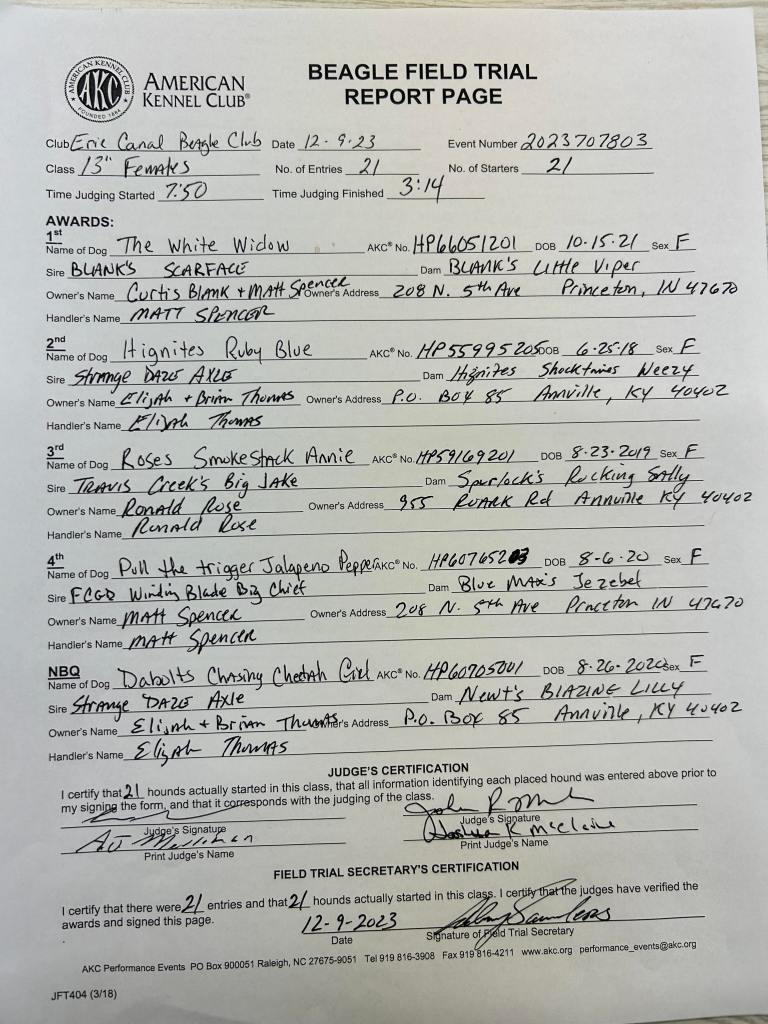 AMERICAN KENNEL CLUB
AKC
FOUNDED 1884
AMERICAN
KENNEL CLUB®
BEAGLE FIELD TRIAL
REPORT PAGE
Club Erie Canal Beagle Club Date 12-9-23 Event Number 2023707803
Class 13" Females No. of Entries 21 No. of Starters 21
Time Judging Started 7:50 Time Judging Finished 3:14
AWARDS:
1st
Name of Dog The White Widow AKC® No. HP66051201 DOB 10-15-21 Sex F
Sire BLANK'S SCARFACE Dam BLANK'S Little Viper
Owner's Name Curtis Blank + Matt Spencer Owner's Address 208 N. 5th Ave Princeton, IN 47670
Handler's Name MATT SPENCER
2nd
Name of Dog Hignites Ruby Blue AKC® No. HP55995205 DOB 6-25-18 Sex F
Sire Strange DAZE AXLE Dam Hignites Shocktaines Weezy
Owner's Name Elijah + Brian Thomas Owner's Address P.O. BOX 85 Annville, KY 40402
Handler's Name Elijah Thomas
3rd
Name of Dog Roses Smokestack Annie AKC® No. HP59169201 DOB 8-23-2019 Sex F
Sire TRAVIS Creek's Big JAKE Dam Spurlock's Rocking Sally
Owner's Name Ronald Rose Owner's Address 955 ROARK Rd Annville KY 40402
Handler's Name Ronald Rose
4th
Name of Dog Pull the trigger Jalapeno Pepper AKC® No. HP60765203 DOB 8-6-20 Sex F
Sire FCGD Winding Blade Big Chief Dam Blue Max's Jezebel
Owner's Name MATT Spencer Owner's Address 208 N. 5th Ave Princeton IN 47670
Handler's Name MATT Spencer
NBQ
Name of Dog Dabolts Chasing Cheetah Girl AKC® No. HP60705001 DOB 8-26-2020 Sex F
Sire Strange DAZE Axle Dam Newt's BLAZING LILLY
Owner's Name Elijah + Brian Thomas Owner's Address P.O. Box 85 Annville, KY 40402
Handler's Name Elijah Thomas
JUDGE'S CERTIFICATION
I certify that 21 hounds actually started in this class, that all information identifying each placed hound was entered above prior to
my signing the form, and that it corresponds with the judging of the class.
Judge's Signature Judge's Signature
Joshua R McClaine
Print Judge's Name Print Judge's Name
FIELD TRIAL SECRETARY'S CERTIFICATION
I certify that there were 21 entries and that 21 hounds actually started in this class. I certify that the judges have verified the
awards and signed this page.
12-9-2023
Date Signature of Field Trial Secretary
AKC Performance Events PO Box 900051 Raleigh, NC 27675-9051 Tel 919 816-3908 Fax 919 816-4211 www.akc.org performance_events@akc.org
JFT404 (3/18)